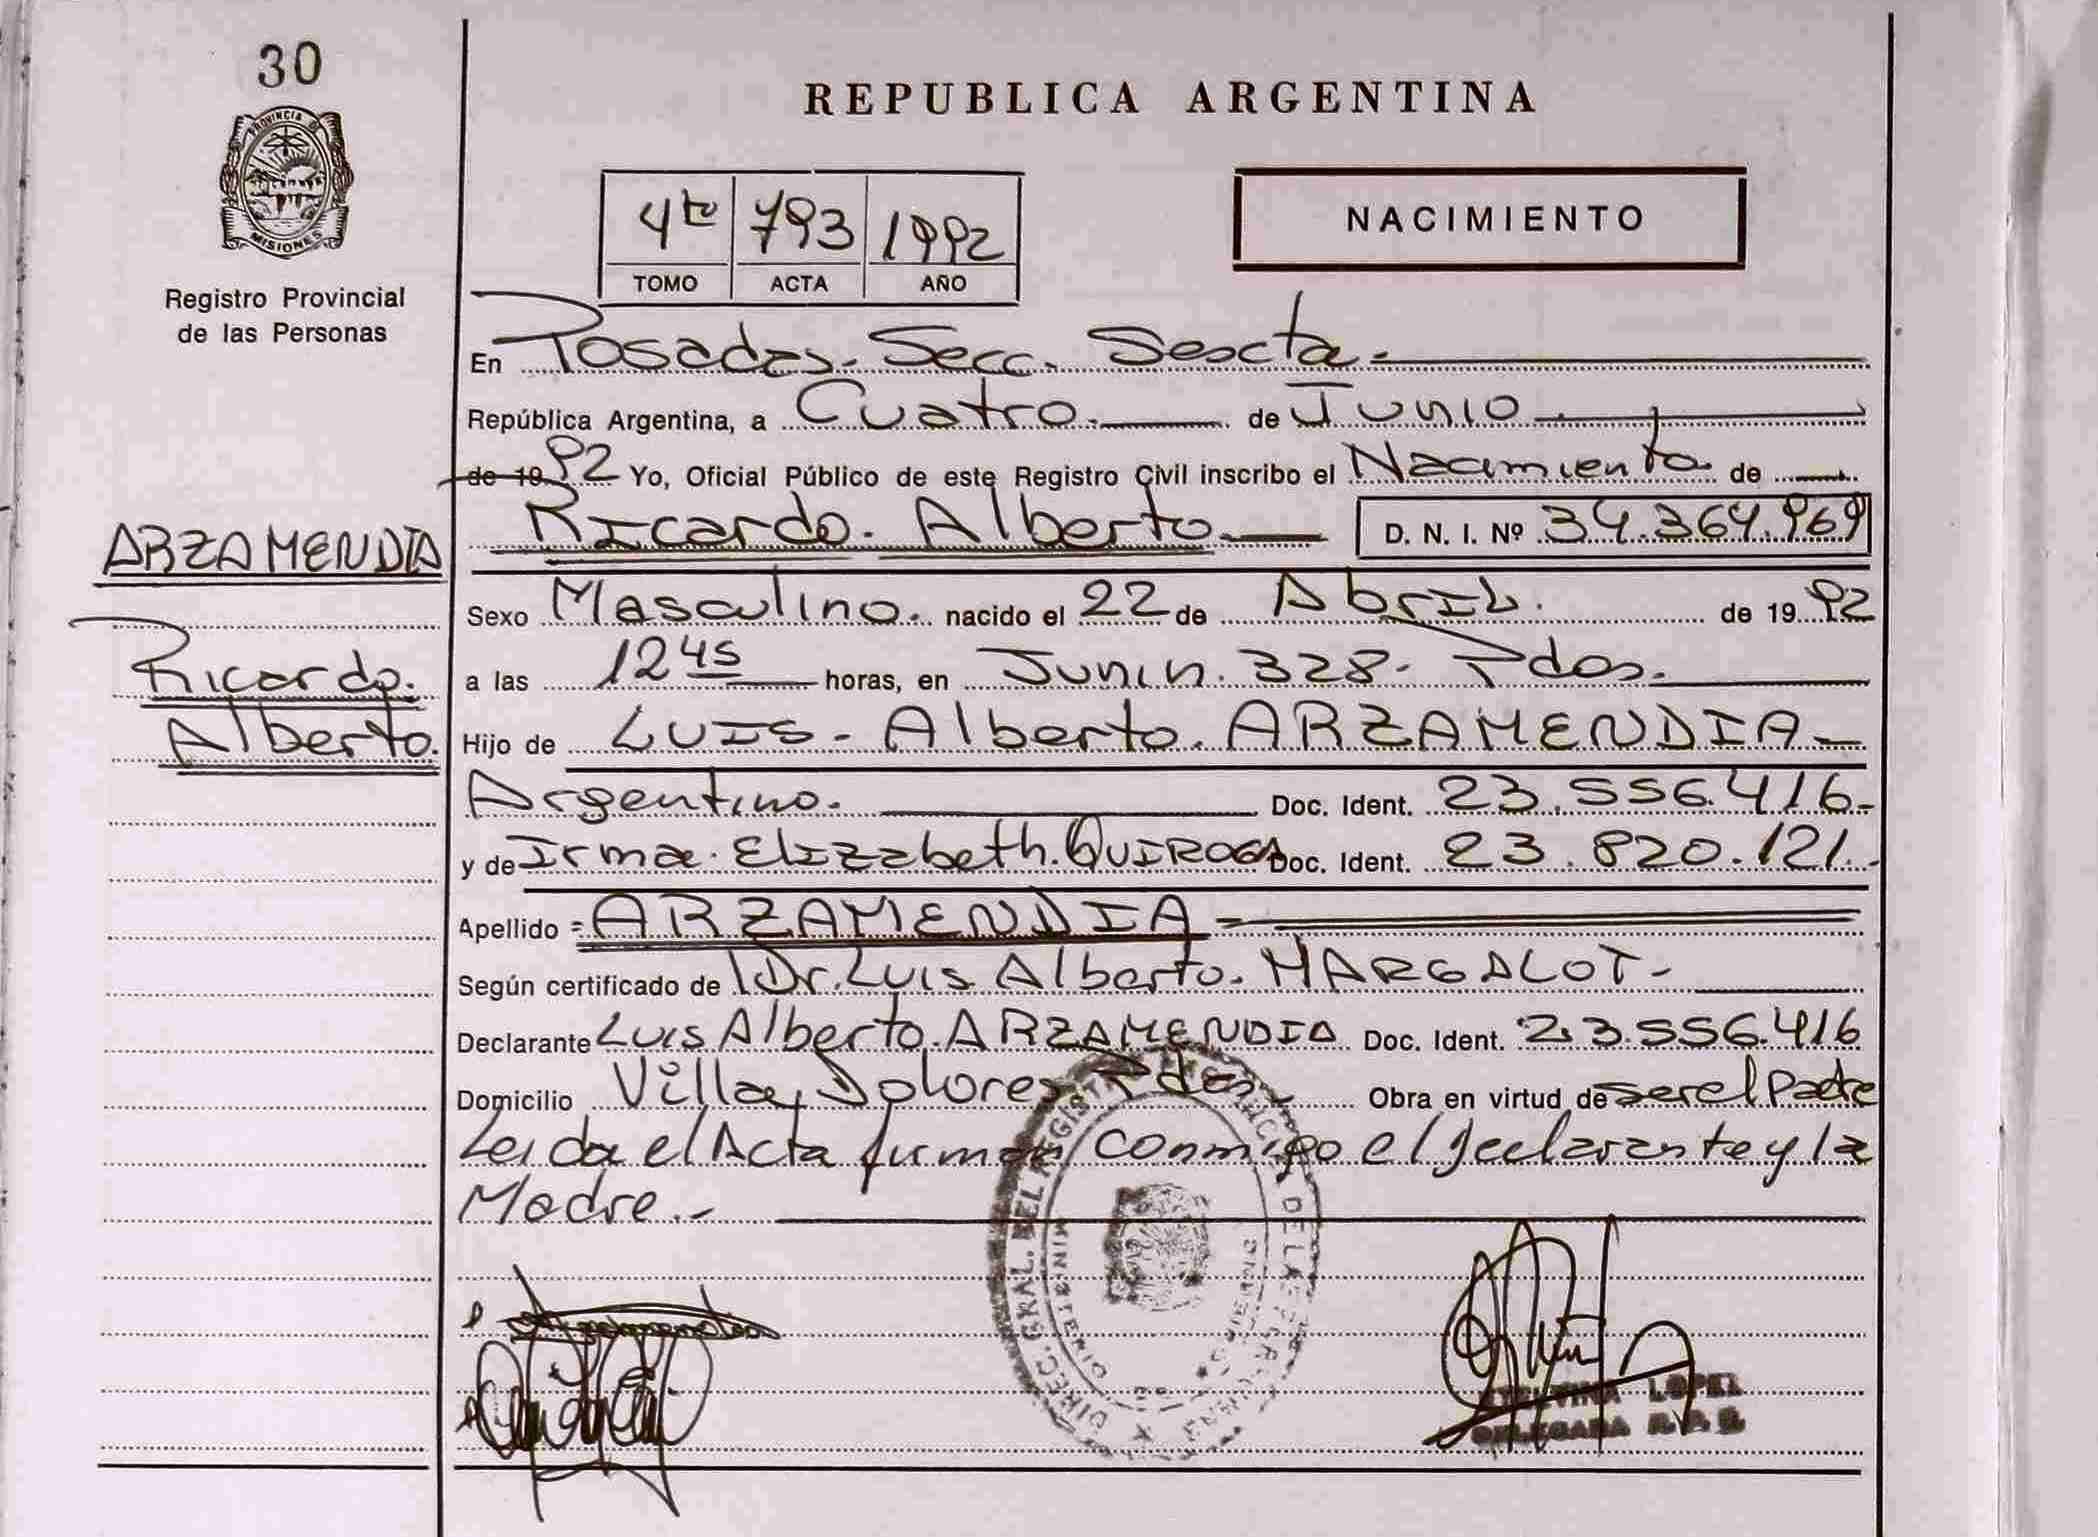 30
PROVINCIA DE
MISIONES
Registro Provincial
de las Personas
REPUBLICA ARGENTINA
4to 793 1992
TOMO ACTA AÑO
NACIMIENTO
En Posadas. Secc. Sexta.
República Argentina, a Cuatro. de Junio
de 19 92 Yo, Oficial Público de este Registro Civil inscribo el Nacimiento de
Ricardo. Alberto D. N. I. Nº 34.364.969
ARZAMENDIA
Ricardo.
Alberto.
Sexo Masculino. nacido el 22 de Abril. de 19 92
a las 12 45 horas, en Junin. 328. Pdas.
Hijo de Luis. Alberto. ARZAMENDIA
Argentino. Doc. Ident. 23.556.416.
y de Irma. Elizabeth. QUIROGA Doc. Ident. 23.820.121.
Apellido = ARZAMENDIA
Según certificado de Dr. Luis Alberto. MARGALOT-
Declarante Luis Alberto. ARZAMENDIA Doc. Ident. 23.556.416
Domicilio Villa Dolores Pdas. Obra en virtud de ser el Padre
Leida el Acta firman conmigo el declarante y la
Madre.-
DIREC. GRAL. DEL REGISTRO PROVINCIAL DE LAS PERSONAS
ETELVINA LOPEZ
DELEGADA